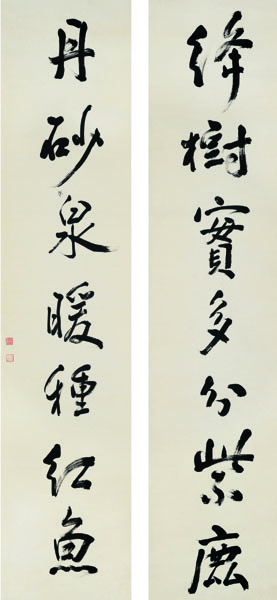 絳樹實多分紫鹿
丹砂泉暖種紅魚